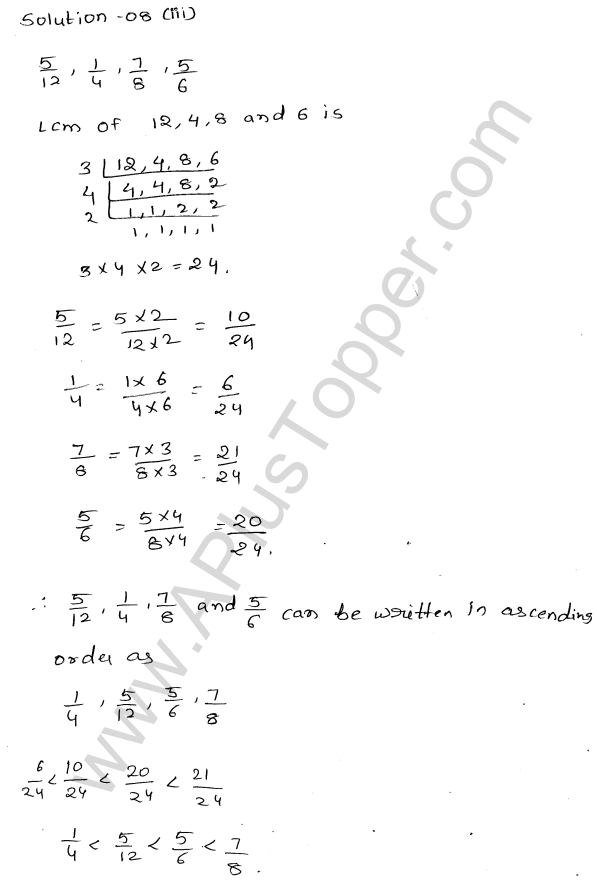 Solution-08 (iii)
5/12, 1/4, 7/8, 5/6
Lcm of 12, 4, 8 and 6 is
3 | 12, 4, 8, 6
4 | 4, 4, 8, 2
2 | 1, 1, 2, 2
1, 1, 1, 1
3 × 4 × 2 = 24.
5/12 = 5×2/12×2 = 10/24
1/4 = 1×6/4×6 = 6/24
7/8 = 7×3/8×3 = 21/24
5/6 = 5×4/8×4 = 20/24.
∴ 5/12, 1/4, 7/8 and 5/6 can be written in ascending
order as
1/4, 5/12, 5/6, 7/8
6/24 < 10/24 < 20/24 < 21/24
1/4 < 5/12 < 5/6 < 7/8.
www.APlusTopper.com